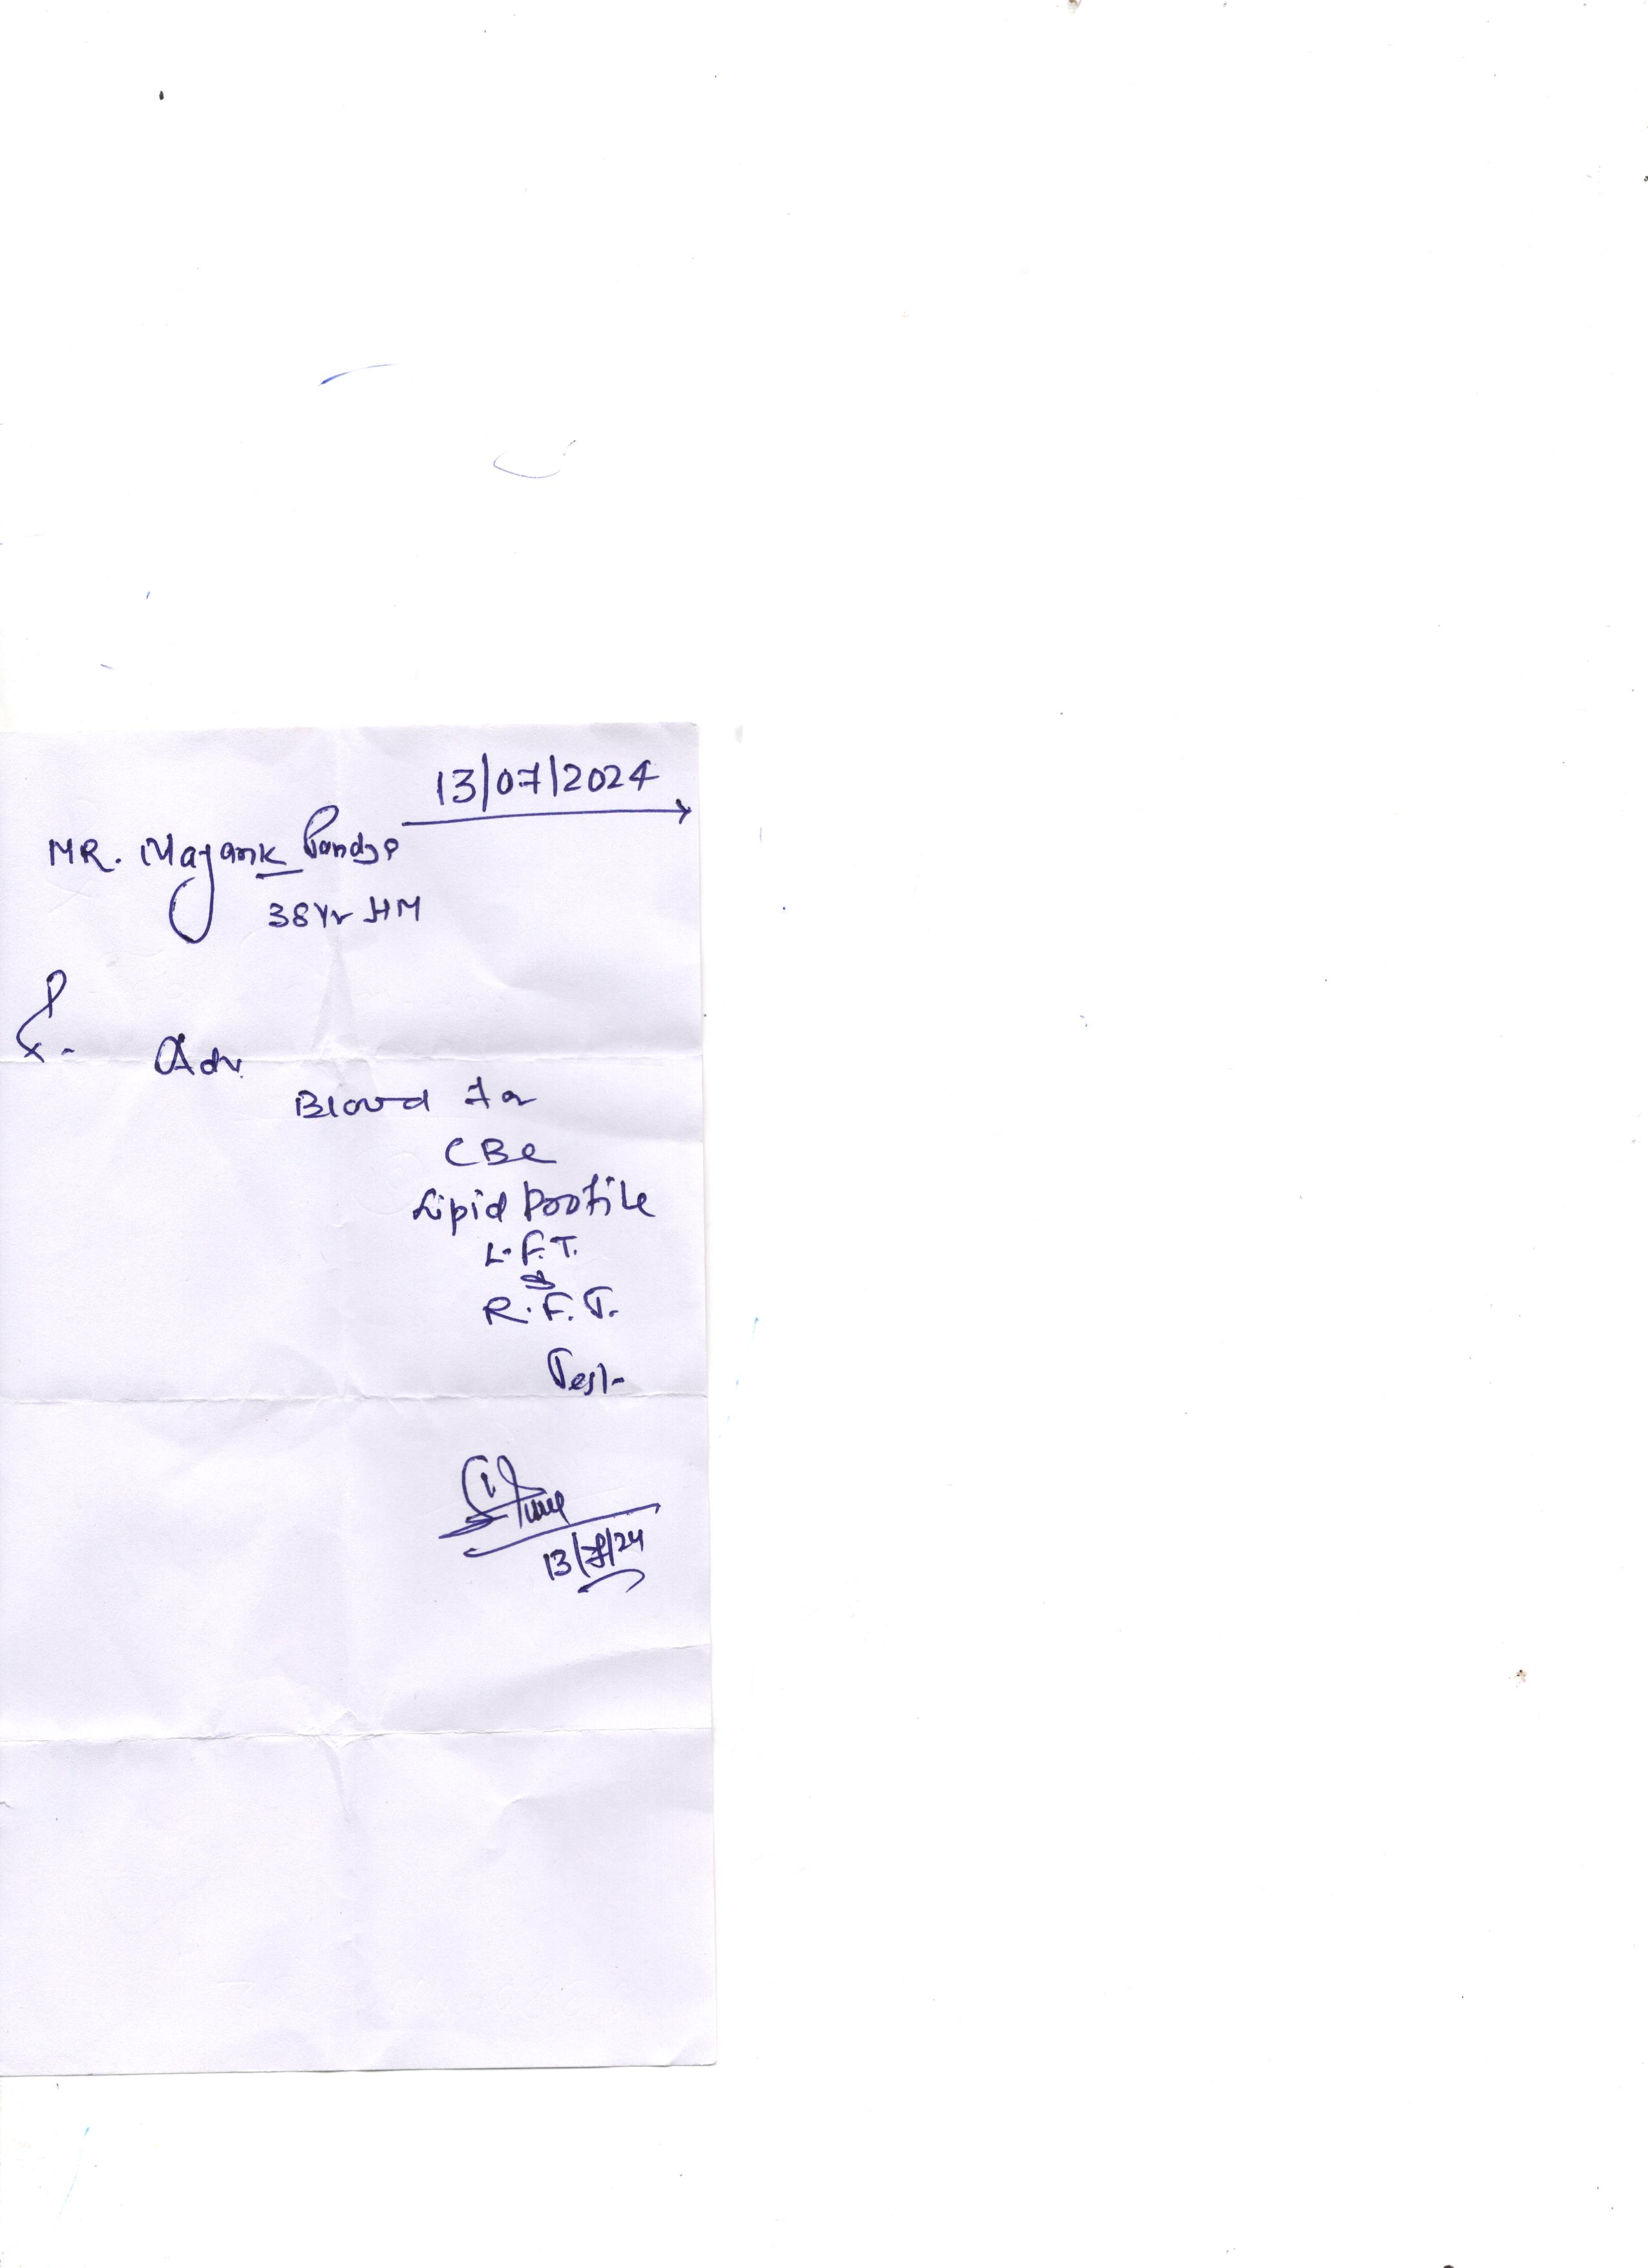 13/07/2024
MR. Mayank Pande
38 Yr HM
Adv.
Blood For
CBC
Lipid Profile
L.F.T.
&
R.F.T.
Test
13/7/24